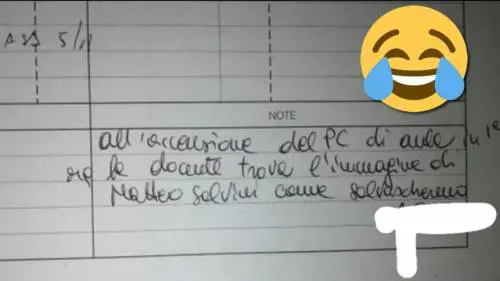 ASS 5/11
NOTE
all'accensione del PC di aula in 1ª
la docente trova l'immagine di
Matteo Salvini come salvaschermo